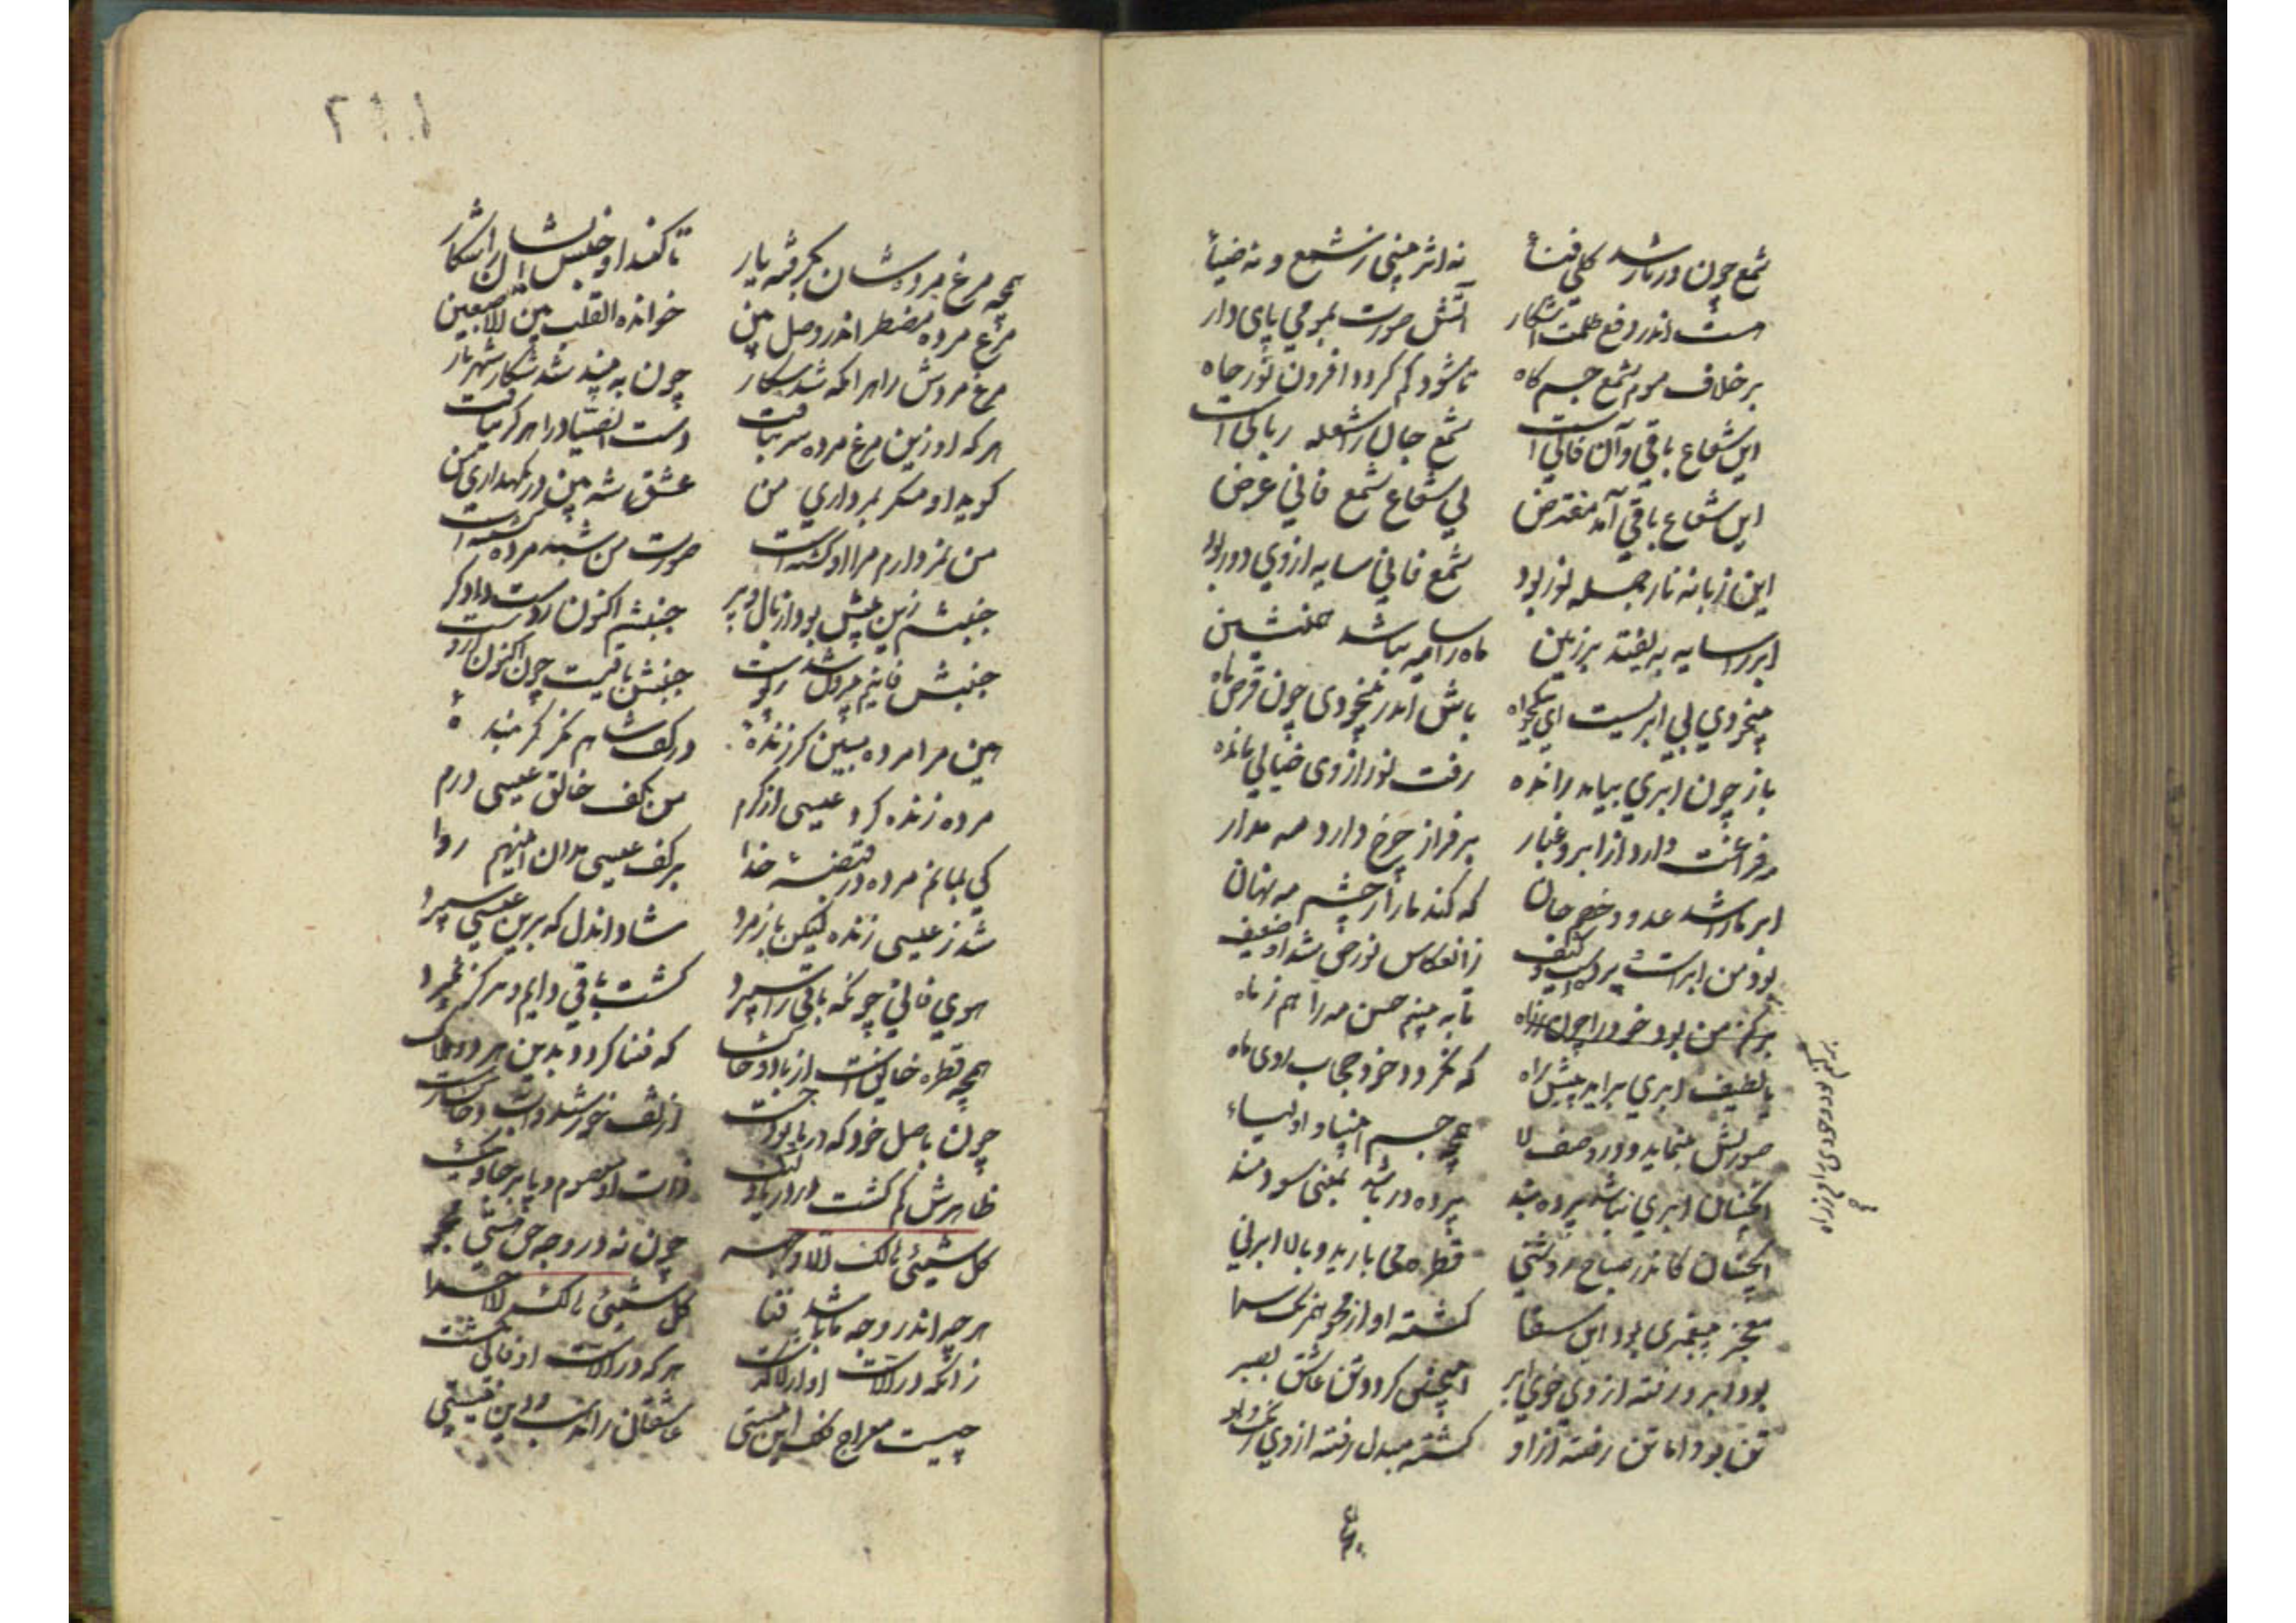 شمع چون در نار شد کلی فنا نه اثر بینی ز شمع و نه ضیا
هست اندر دفع ظلمت آشکار آتش صورت بمومی پای دار
برخلاف موم شمع جسم کاه تا شود کم گردد افزون نور جاه
این شعاع باقی و آن فانی است شمع جان را شعله ربانی است
این شعاع باقی آمد مفترض نی شعاع شمع فانی عرض
این زبانه نار جمله نور بود شمع فانی سایه از وی دور بود
ابر را سایه به یفتد بر زمین ماه را سایه نباشد همنشین
بیخودی بی ابریست ای نیکخواه باش اندر بیخودی چون قرص ماه
باز چون ابری بیاید رانده رفت نور از وی خیالی مانده
مه فراغت دارد از ابر و غبار بر فراز چرخ دارد مه مدار
ابر ما را شد عدو و خصم جان که کند ما را ز چشم مه نهان
بود من ابرست پردست و کثیف ز انعکاس نور حق شد او ضعیف
برکنم من بود خود را چون ز راه تا به بینم حسن مه را هم ز ماه
یا لطیف ابری برآید پیش راه که نگردد خود حجاب روی ماه
صورتش بنماید و در وصف لا همچو جسم انبیا و اولیاء
آنچنان ابری نباشد پرده بند پرده در باشد بمعنی سودمند
آنچنان کاندر صباح روشنی قطره می بارید و بالا ابر نی
معجز پیغمبری بود این سقا گشته او از محو همرنگ سما
بود ابر و رفته از وی خوی ابر اینچنین گردد تن عاشق بصبر
تن بود اما تنی رفته ازاو گشته مبدل رفته از وی رنگ و بو
همچو مرغ مرده شان بگرفته یار تا کند او جنس ایشان را شکار
مرغ مرده مضطر اندر وصل و بین خوانده القلب بین الاصبعین
مرغ مردش را هرانکه شد شکار چون به بیند شد شکار شهریار
هر که او زین مرغ مرده سر بتافت دست آن صیاد را هرگز نیافت
گوید او منگر بمرداری من عشق شه بین در نگهداری من
من نمردارم مرا او کشته است صورت من شبه مرده گشته است
جنبشم زین پیش بود از بال و پر جنبشم اکنون ز دست دادگر
جنبش فانیم بیرون شد ز پوست جنبشم باقیست چون اکنون ازوست
هین مرا مرده مبین گر زنده در کف شاهم نگر گر بنده
مرده زنده کرد عیسی از کرم من بکف خالق عیسی درم
کی بمانم مرده در قبضه خدا بر کف عیسی مدان این هم روا
شد ز عیسی زنده لیکن باز مرد شاد اندل که برین عیسی سپرد
هوی فانی چونکه باقی را سپرد گشت باقی دایم و هرگز نمرد
همچو قطره خائف از باد و خاک که فنا گردد بدین هر دو هلاک
چون باصل خود که دریا بود جست از تف خورشید و باد و خاک رست
ظاهرش گم گشت در دریا ولیک ذات او معصوم و پا برجا و نیک
کل شیئی هالک الا وجهه چون نه در وجه حق هستی مجو
هر چه اندر وجه ما باشد فنا کل شیئی هالک لا جزا
زانکه در الاست او از لا گذشت هر که در الاست او فانی نگشت
چیست معراج فلک این نیستی عاشقان را مذهب و دین نیستی